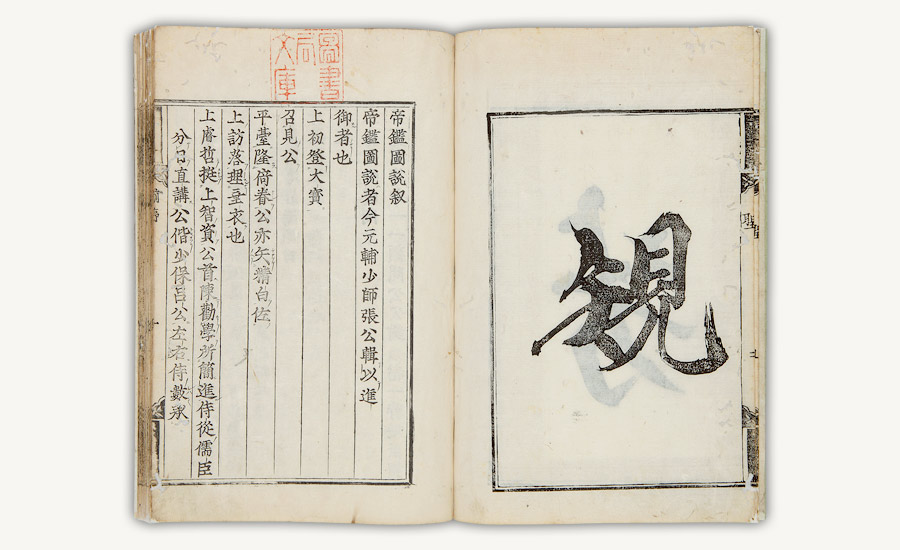 䂓
帝鑑圖說叙
帝鑑圖說者今元輔少師張公輯以進
御者也
上初登大寳
召見公
平臺隆倚眷公亦矢精白佐
上訪落理垂衣也
上睿哲挺上智資公首陳勸學所簡進侍從儒臣
分日直講公偕少保呂公左右侍數承
書
文庫